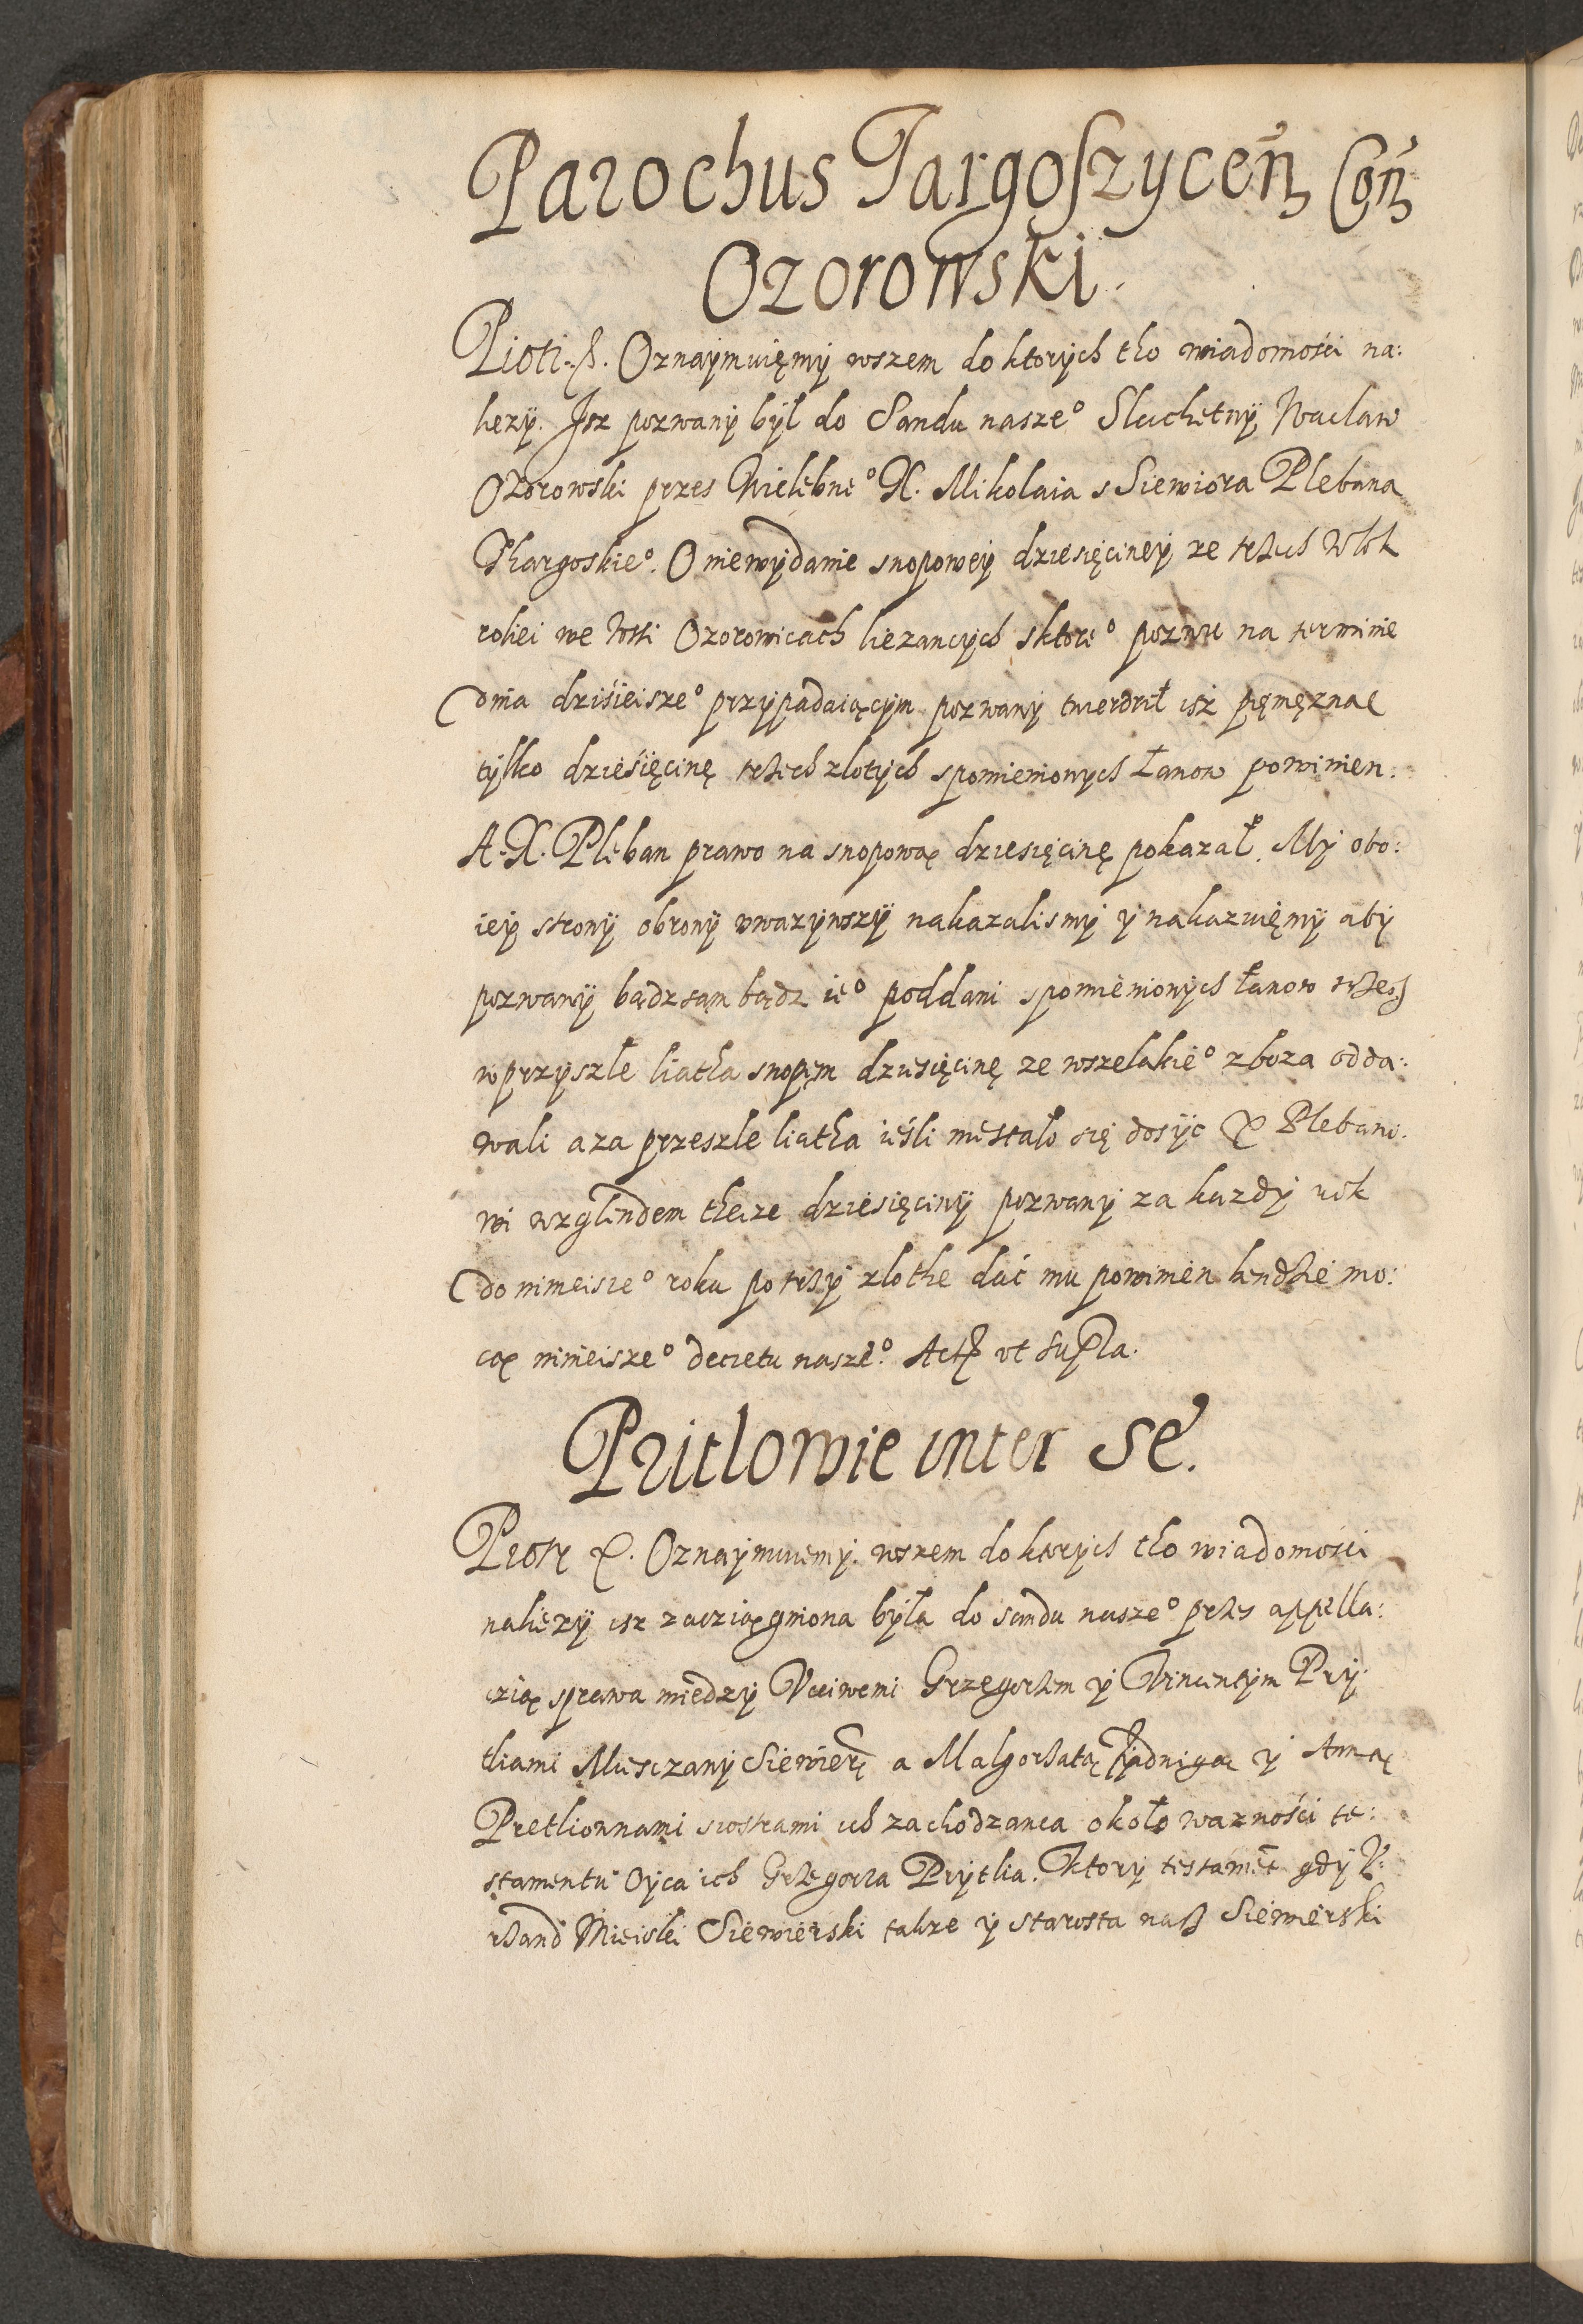 Parochus Targoszyceñ Coñ
Ozorowski.
Piotr. Oznaÿmuięmÿ wszem do ktorÿch tho wiadomości na:
lezÿ. Isz pozwanÿ bÿl do Sandu naszeº Sluchetnÿ Waclaw
Ozorowski przes Wielebneº X. Mikolaia s Siewiora Plebana
Thargoskieº. O niewÿdanie snopoweÿ dziesięcineÿ ze trzech Wlok
roliei we Wsi Ozorowicach liezancÿch s ktoreº pozwu na terminie
dnia dzisieiszeº przÿpadaiącÿm pozwanÿ twierdził isz pięnięzną
tÿlko dziesięcinę trzech zlotÿch spomienionÿch Łanow powinien.
A. X. Pleban prawo na snopową dziesięcinę pokazał. Mÿ obo:
ieÿ stronÿ obronÿ uwazÿwszÿ nakazalismÿ ÿ nakazuięmÿ abÿ
pozwanÿ bądz sam bądz ieº poddani spomienionÿch łanow trzech
w przÿszłe liatha snopęm dziesięcinę ze wszelakieº zboza odda:
wali a za przeszle liatha ieśli niestało się dosÿc X Plebano:
wi wzglendem theize dziesięcinÿ pozwanÿ za kazdÿ rok
do ninieiszeº roku po trzÿ zlothe dać mu powinien bendzie mo:
cą ninieiszeº decretu naszeº. Act ut supra.
Pritlowie inter se.
Piotr. Oznaÿmuiemÿ wszem do ktorÿch tho wiadomości
naliezÿ isz zacziągniona bÿła do sandu naszeº przes appella:
czią sprawa miedzÿ Vcciwemi Grzegorzem ÿ Wincentÿm Prÿ:
tliami Miesczanÿ Siewier a Malgorzatą Jadwigą ÿ Anną
Pretliownami siostrami ich zachodzanca około waznośći te:
stamentu Oÿca ich Grzegorza Prÿtlia. Ktorÿ testamēt gdÿ V:
rzand Mieiski Siewierski takze ÿ Starosta nasz Siewierski